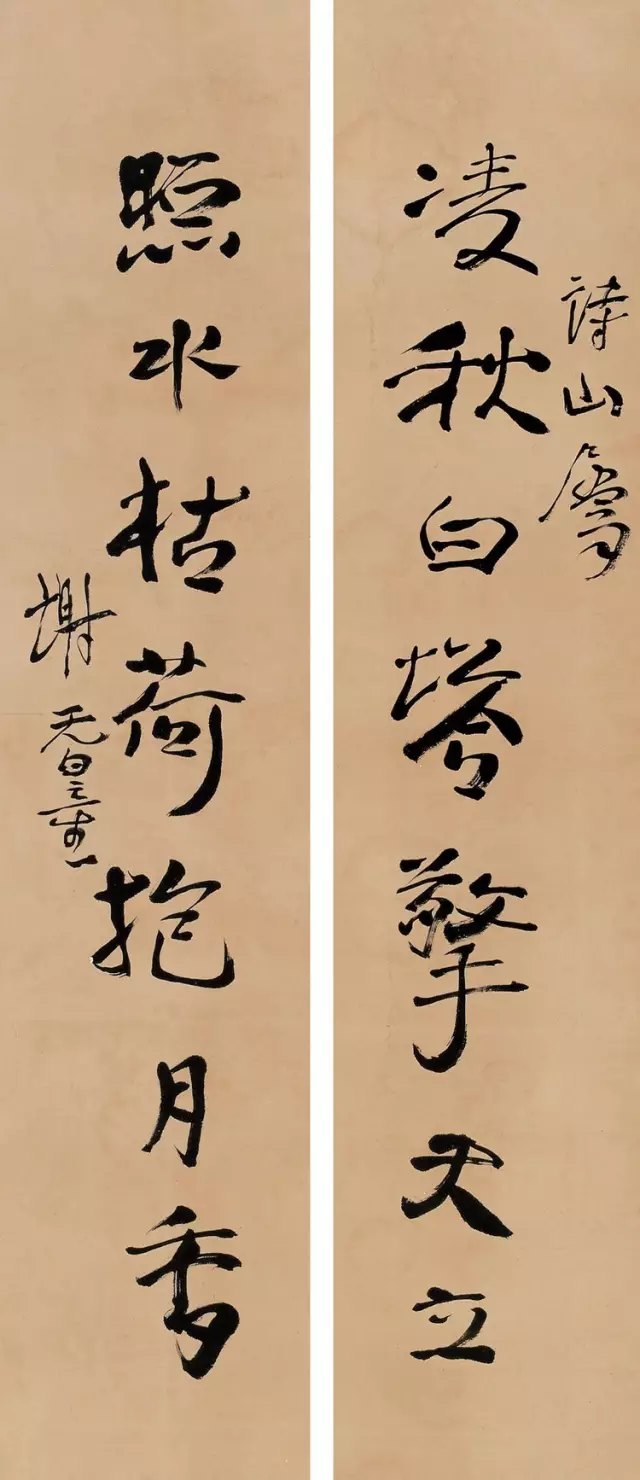 凌秋白塔擎天立
詩山屬
照水枯荷抱月香
謝无量